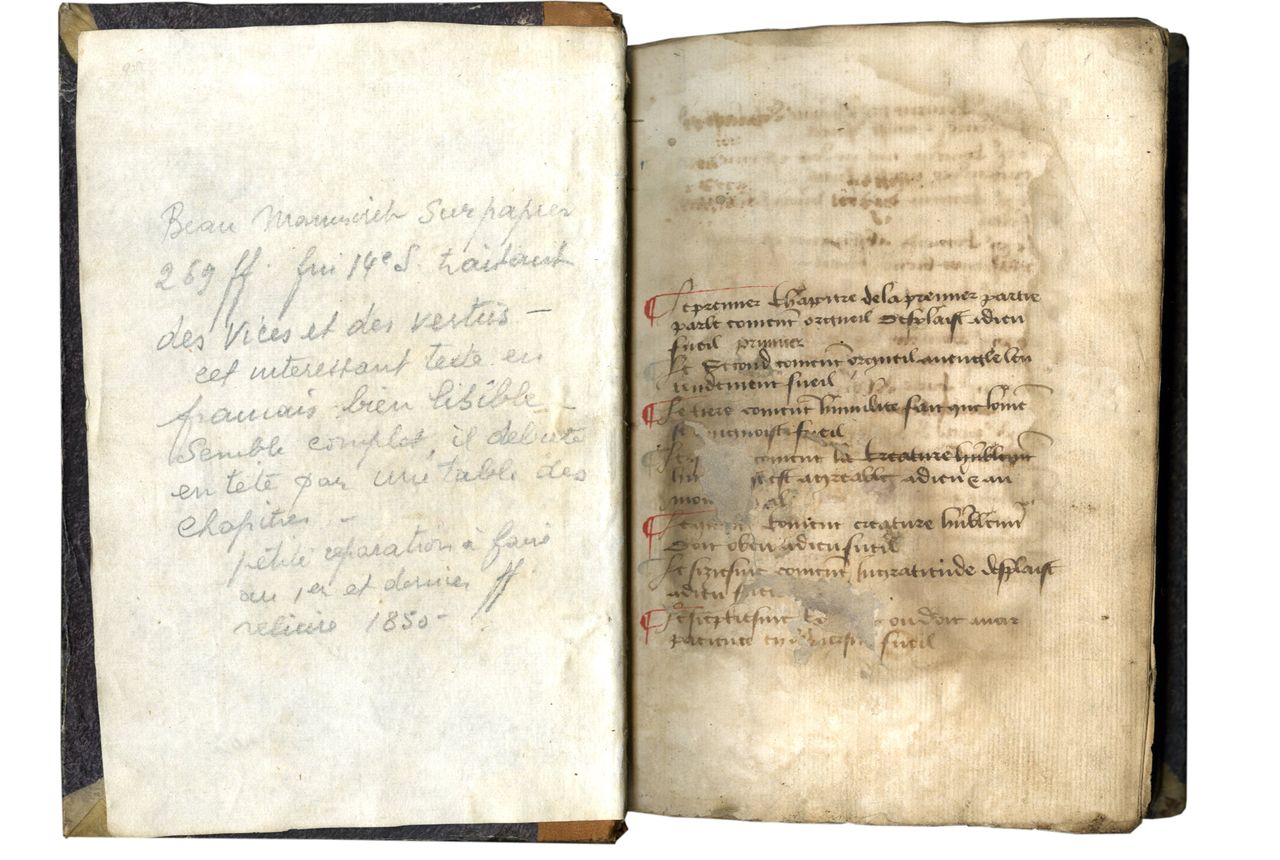 Beau Manuscrit Sur papier
269 ff. fin 14e S. traitant
des Vices et des vertus –
cet interessant texte en
francais bien lisible –
Semble complet, il debute
en tete par une table des
chapitres –
petite reparation à faire
au 1er et dernier ff
reliure 1850 –
Le premier chapitre de la premier partie
parle coment orgueil desplaist adieu
fueil premier
Le Second coment orgueil aveugle len
tendement fueil
Le tiers coment humilite fait que lome
se fueil
coment la creature humblement
est agreable adieu & au
mon
coment creature humblement
doit obeir adieu fueil
Le siziesme coment ingratitude desplaist
adieu
Le septiesme on doit avoir
pacience en fueil